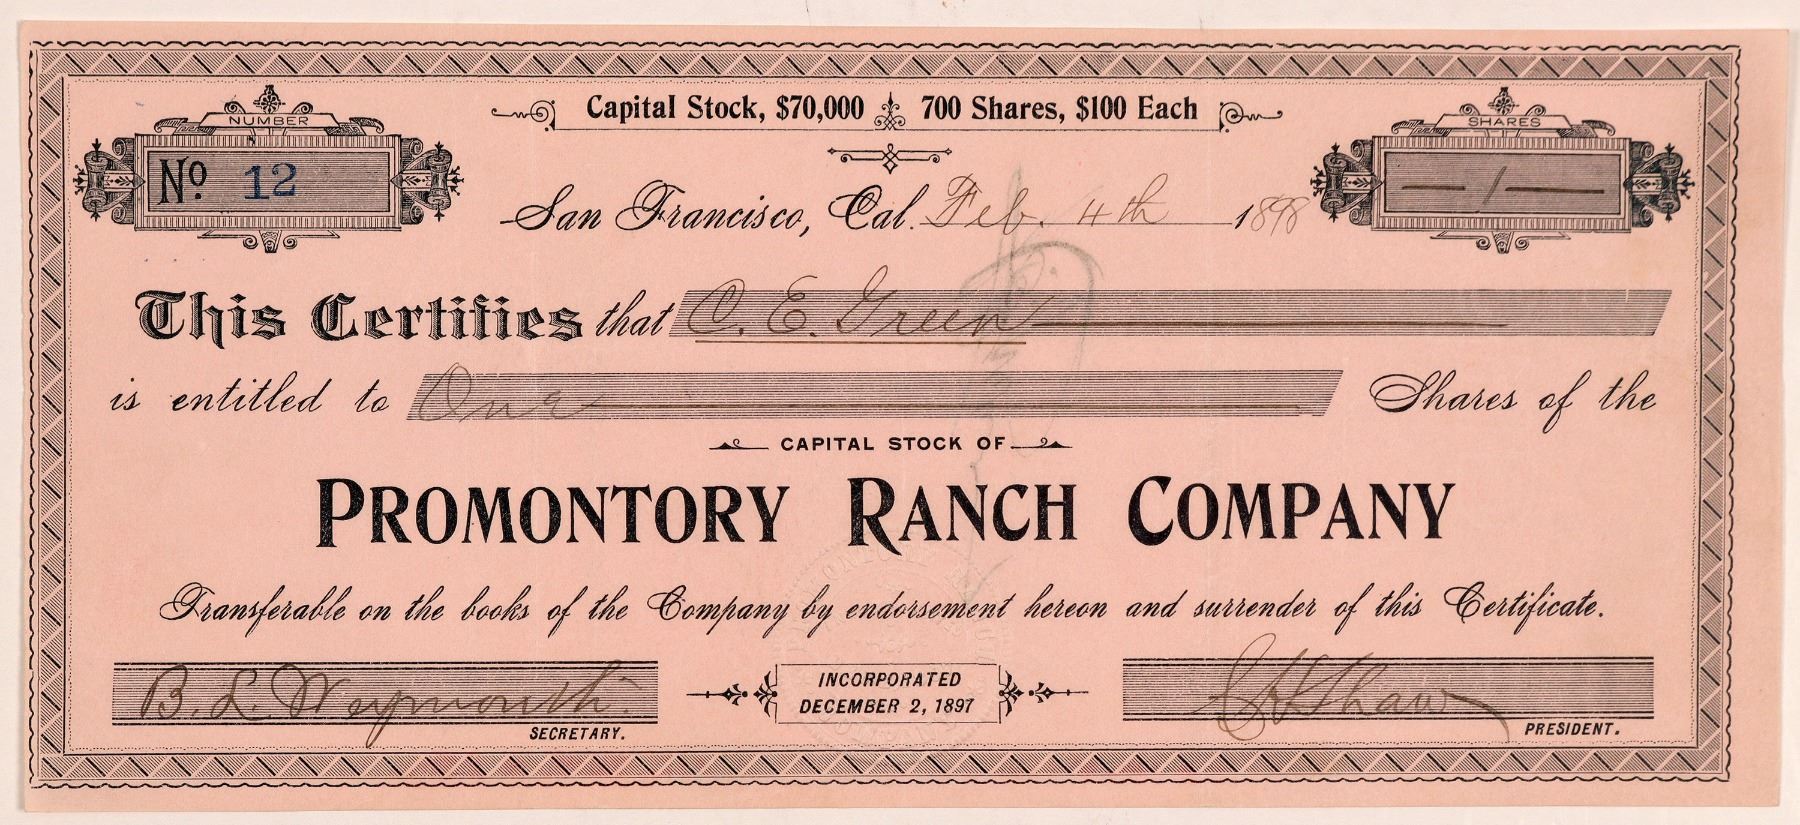 Capital Stock, $70,000 700 Shares, $100 Each
NUMBER
No. 12
SHARES
— 1 —
San Francisco, Cal. Feb. 4th 1898
This Certifies that C. E. Green
is entitled to One Shares of the
CAPITAL STOCK OF
PROMONTORY RANCH COMPANY
Transferable on the books of the Company by endorsement hereon and surrender of this Certificate.
B. L. Weymouth
SECRETARY.
INCORPORATED
DECEMBER 2, 1897
Shaw
PRESIDENT.